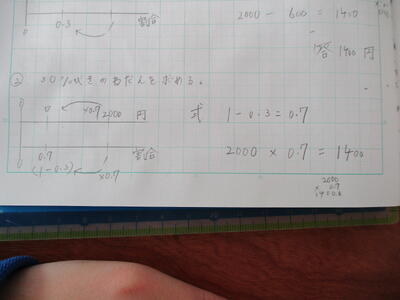 2000 - 600 = 1400
0 0.3 割合
答 1400 円
② 30%引きのねだんを求める。
0 □ ×0.7 2000 円
式 1 - 0.3 = 0.7
0 0.7 割合
(1-0.3) ×0.7
2000 × 0.7 = 1400
2000
× 0.7
1400.0